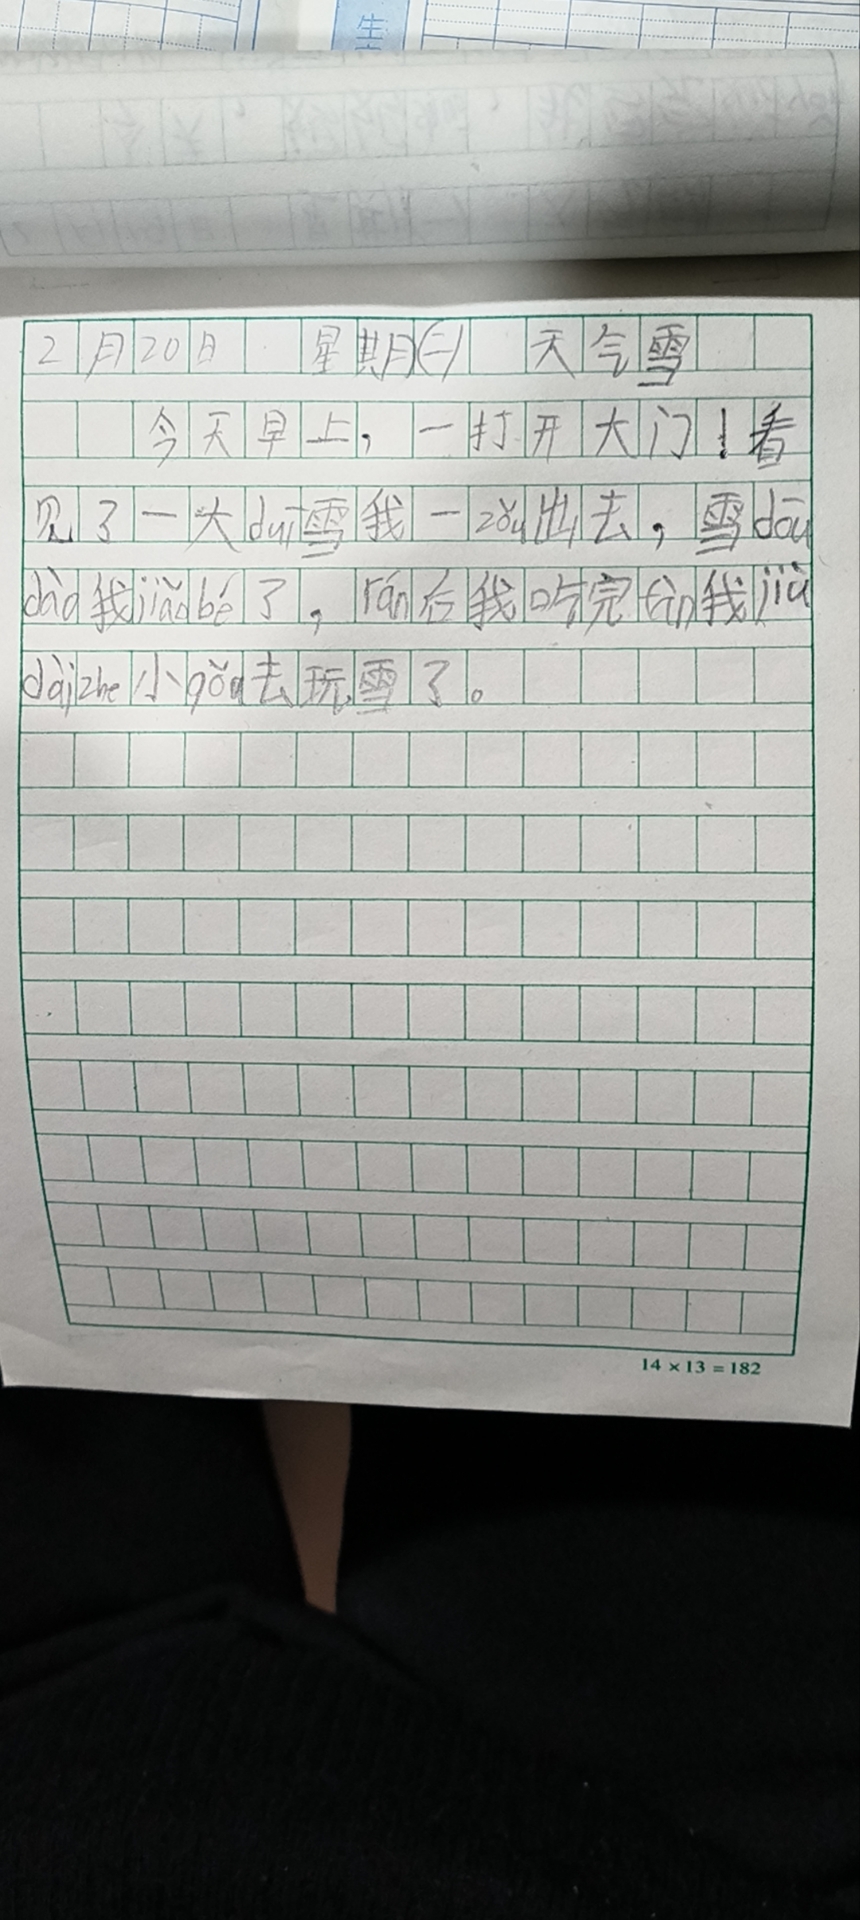 生
2月20日 星期(二) 天气雪
今天早上，一打开大门！看
见了一大duī雪我一zǒu出去，雪dōu
dào我jiǎobé了，rán后我吃完fàn我jiù
dàizhe小gǒu去玩雪了。
14×13=182